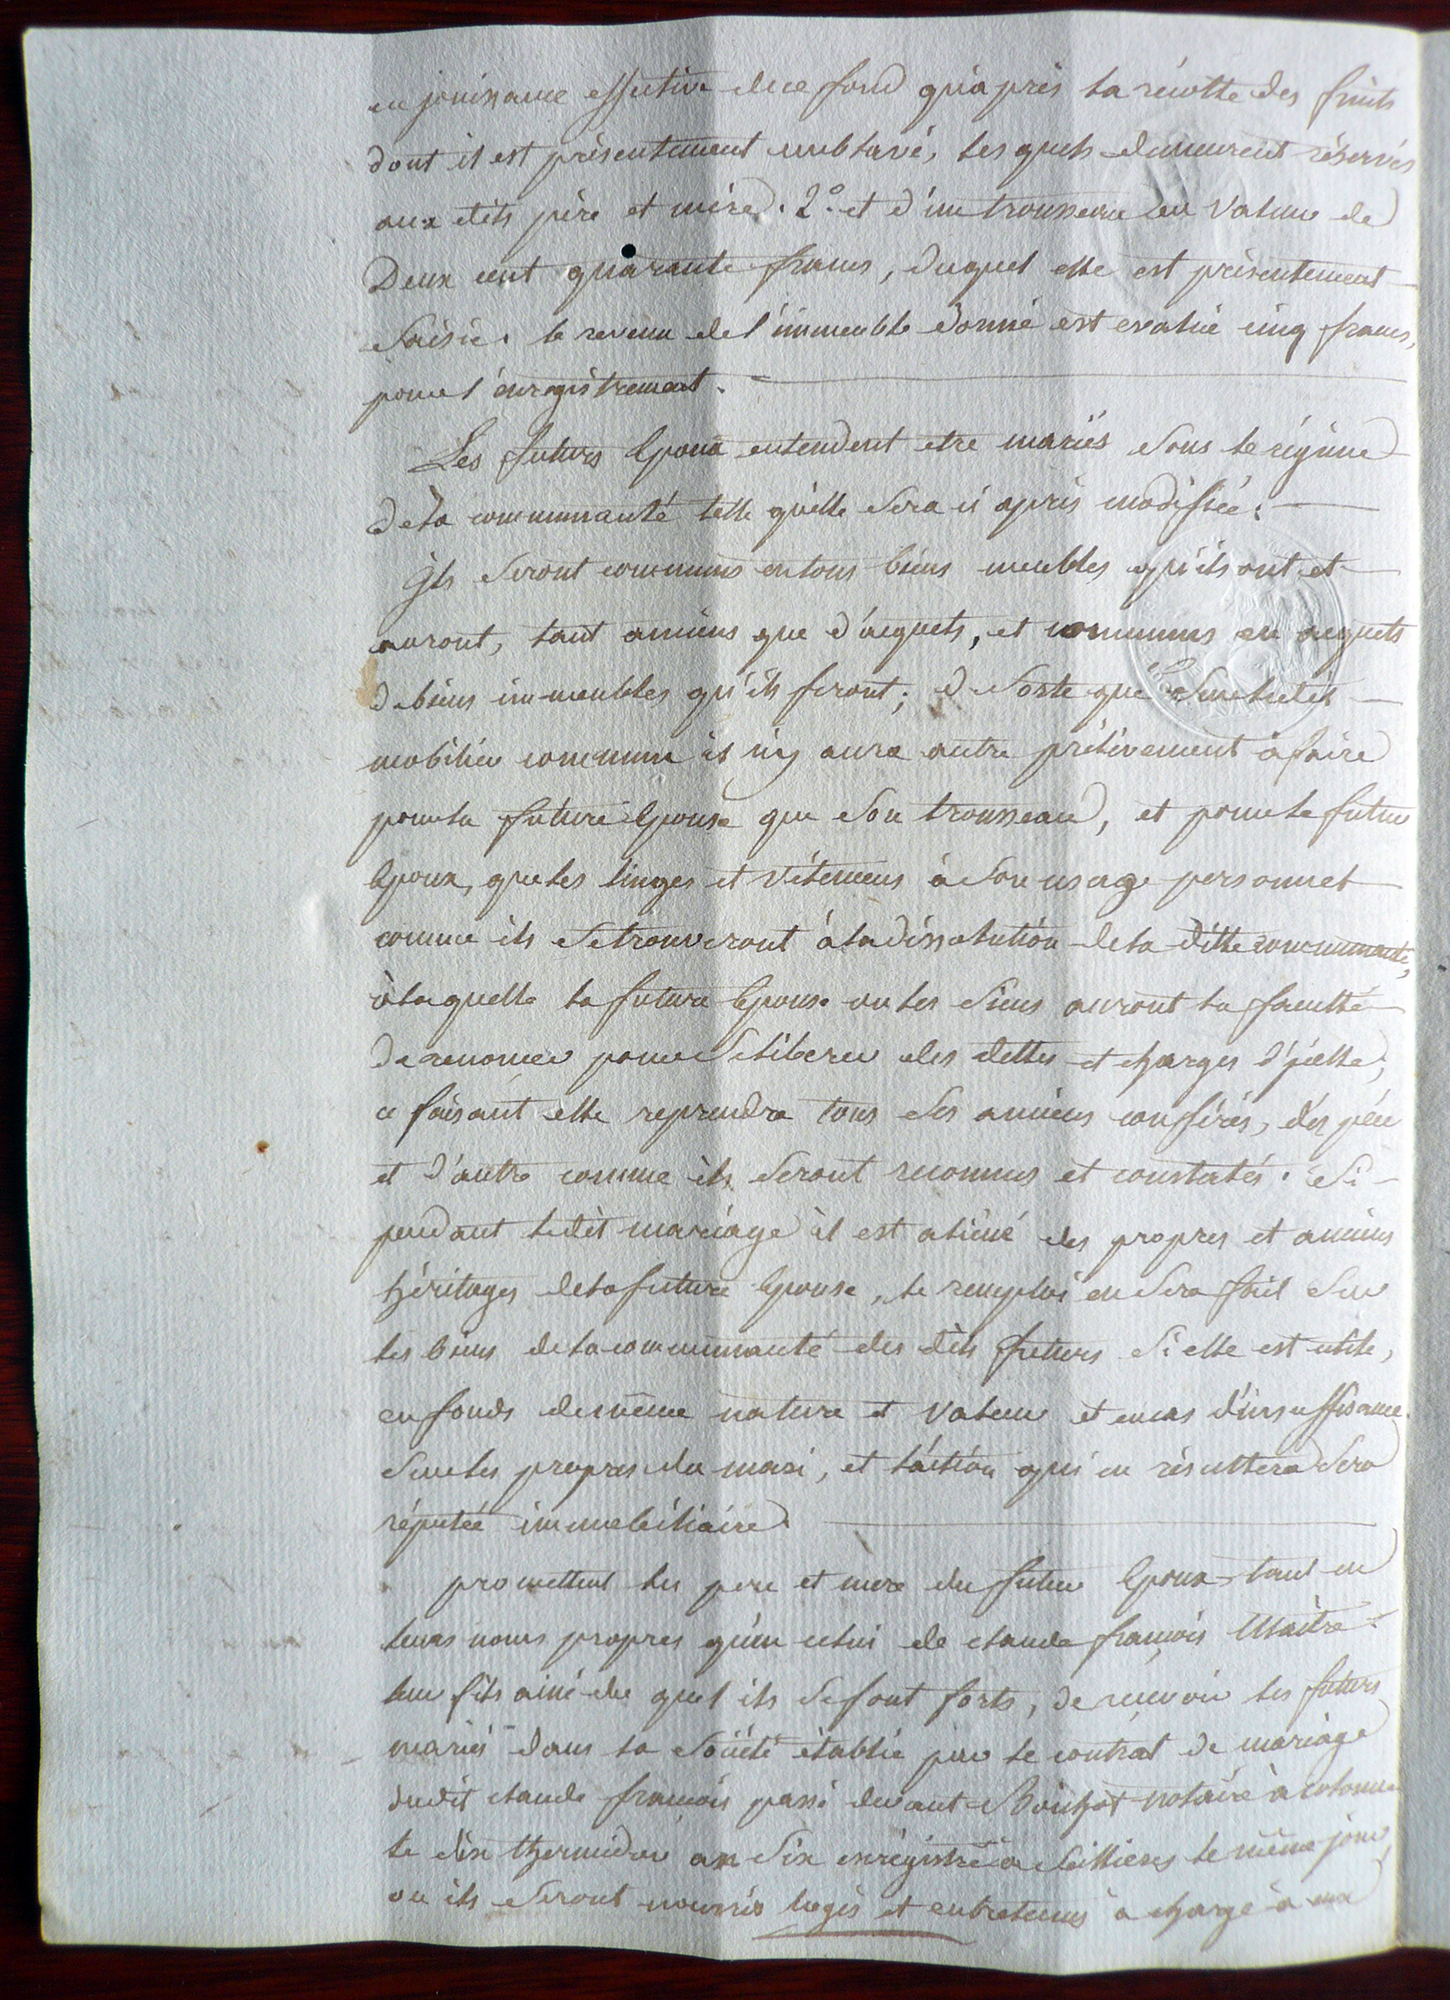 en jouissance effective de ce fond qu'après la récolte des fruits
dont il est présentement emblavé, les quels demeurent réservés
aux dits père et mère. 2° et d'un trousseau en valeur de
Deux cent quarante francs, duquel elle est présentement
saisie. le revenu de l'immeuble donné est evalué cinq francs,
pour l'enregistrement.
Les futurs Epoux entendent etre mariés sous le régime
de la communauté telle qu'elle sera ci après modifiée.
ils seront communs en tous biens meubles qu'ils ont et
auront, tant anciens que d'acquets, et communs en acquets
de biens immeubles qu'ils feront; de sorte que sur le dit
mobilier commun il n'y aura autre prélèvement à faire
pour la future Epouse que son trousseau, et pour le futur
Epoux, que les linges et vêtemens à son usage personnel
comme ils se trouveront à la dissolution de la ditte communauté,
à laquelle la future Epouse ou les siens auront la faculté
de renoncer pour se liberer des dettes et charges d'icelle;
ce faisant elle reprendra tous ses anciens conférés,
et d'autre comme ils seront reconnus et constatés. Si
pendant le dit mariage il est aliéné des propres et anciens
héritages de la future Epouse, le remploi en sera fait sur
les biens de la communauté des dits futurs si elle est utile,
en fonds de même nature et valeur et en cas d'insuffisance
sur les propres du mari, et l'action qui en résultera sera
réputée immobiliaire.
promettent les pere et mere du futur Epoux tant en
leurs noms propres qu'en celui de claude françois Maitre
leur fils ainé du quel ils se font forts, de recevoir les futurs
mariés dans la société établie par le contrat de mariage
dudit claude françois passé devant notaire à colonne
le dix thermidor an six enregistré à Sellieres le même jour,
ou ils seront nourris logés et entretenus à charge à eux